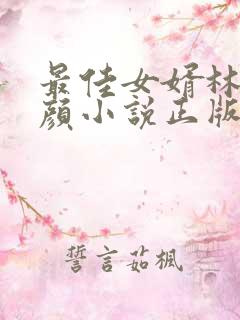 最佳女婿林
顏小說正版
誓言茹楓